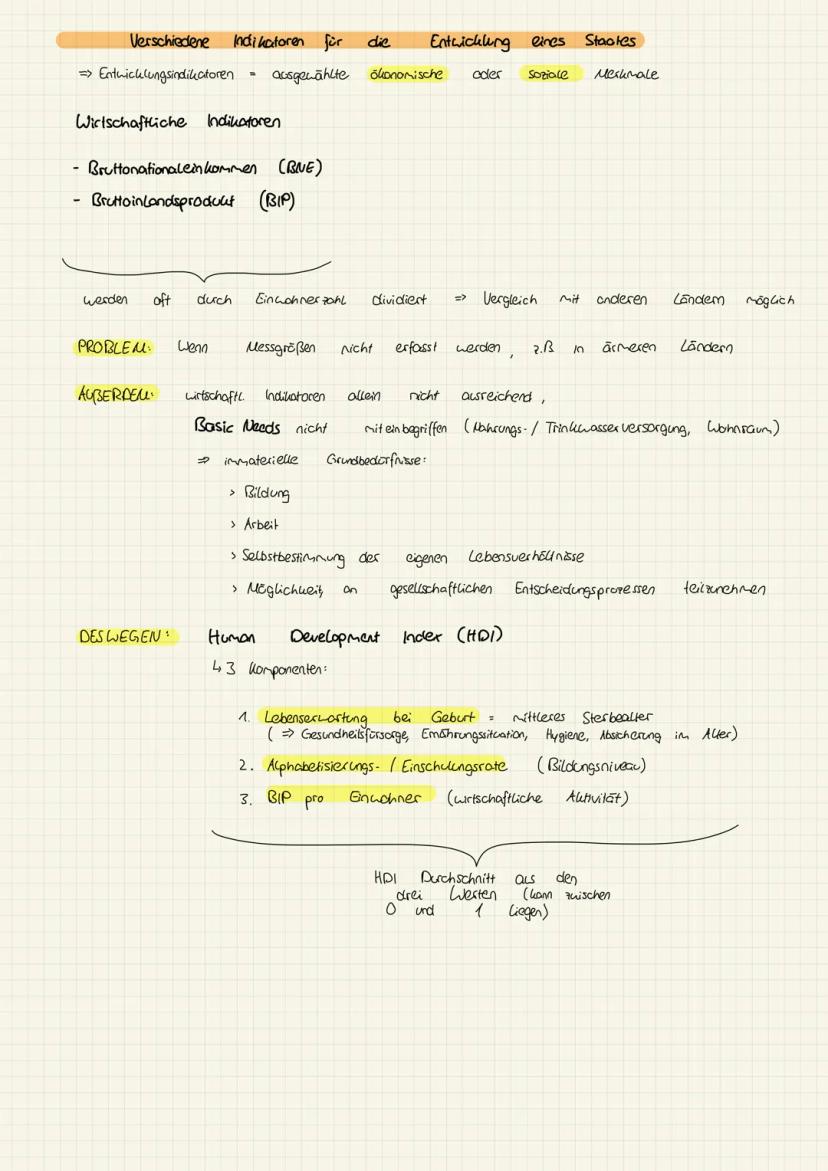 Verschiedene Indikatoren für die Entwicklung eines Staates
=> Entwicklungsindikatoren = ausgewählte ökonomische oder soziale Merkmale
Wirtschaftliche Indikatoren
- Bruttonationaleinkommen (BNE)
- Bruttoinlandsprodukt (BIP)
werden oft durch Einwohnerzahl dividiert => Vergleich mit anderen Ländern möglich
PROBLEM: Wenn Messgrößen nicht erfasst werden, z.B in ärmeren Ländern
AUßERDEM: wirtschaftl. Indikatoren allein nicht ausreichend,
Basic Needs nicht mit einbegriffen (Nahrungs- / Trinkwasserversorgung, Wohnraum)
=> immaterielle Grundbedürfnisse:
> Bildung
> Arbeit
> Selbstbestimmung der eigenen Lebensverhältnisse
> Möglichkeit, an gesellschaftlichen Entscheidungsprozessen teilzunehmen
DESWEGEN: Human Development Index (HDI)
↳ 3 Komponenten:
1. Lebenserwartung bei Geburt = mittleres Sterbealter
( => Gesundheitsfürsorge, Ernährungssituation, Hygiene, Absicherung im Alter)
2. Alphabetisierungs- / Einschulungsrate (Bildungsniveau)
3. BIP pro Einwohner (wirtschaftliche Aktivität)
HDI Durchschnitt aus den
drei Werten (kann zwischen
0 und 1 liegen)